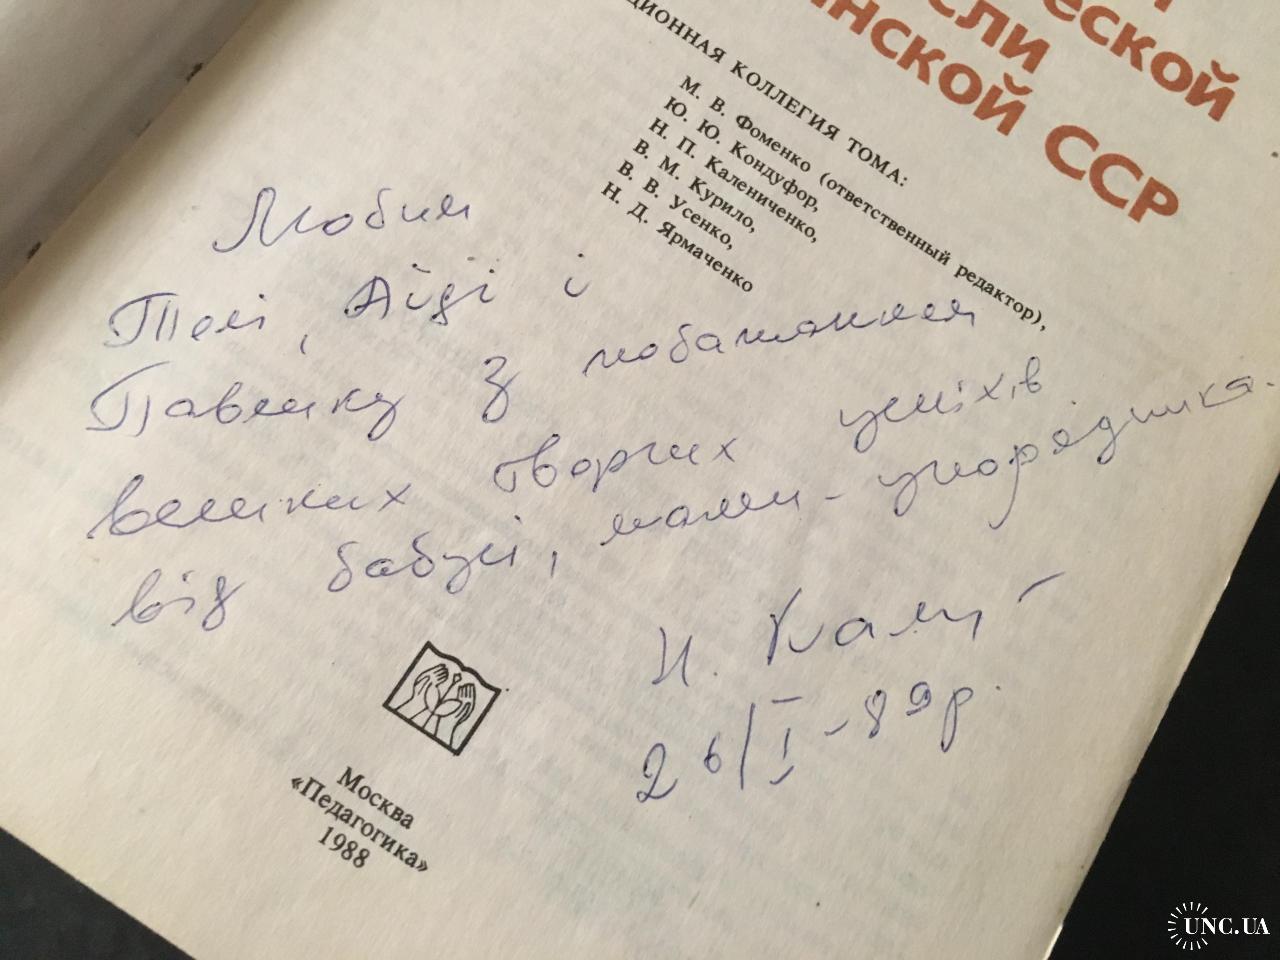 еской
сли
инской ССР
ционная коллегия тома:
М. В. Фоменко (ответственный редактор),
Ю. Ю. Кондуфор,
Н. П. Калениченко,
В. М. Курило,
В. В. Усенко,
Н. Д. Ярмаченко
Любим
Толі, Аїді і
Павлику з побажанням
великих творчих успіхів
від бабусі, мами-упорядника.
Н. Кали
26/I-89р.
Москва
«Педагогика»
1988
UNC.UA